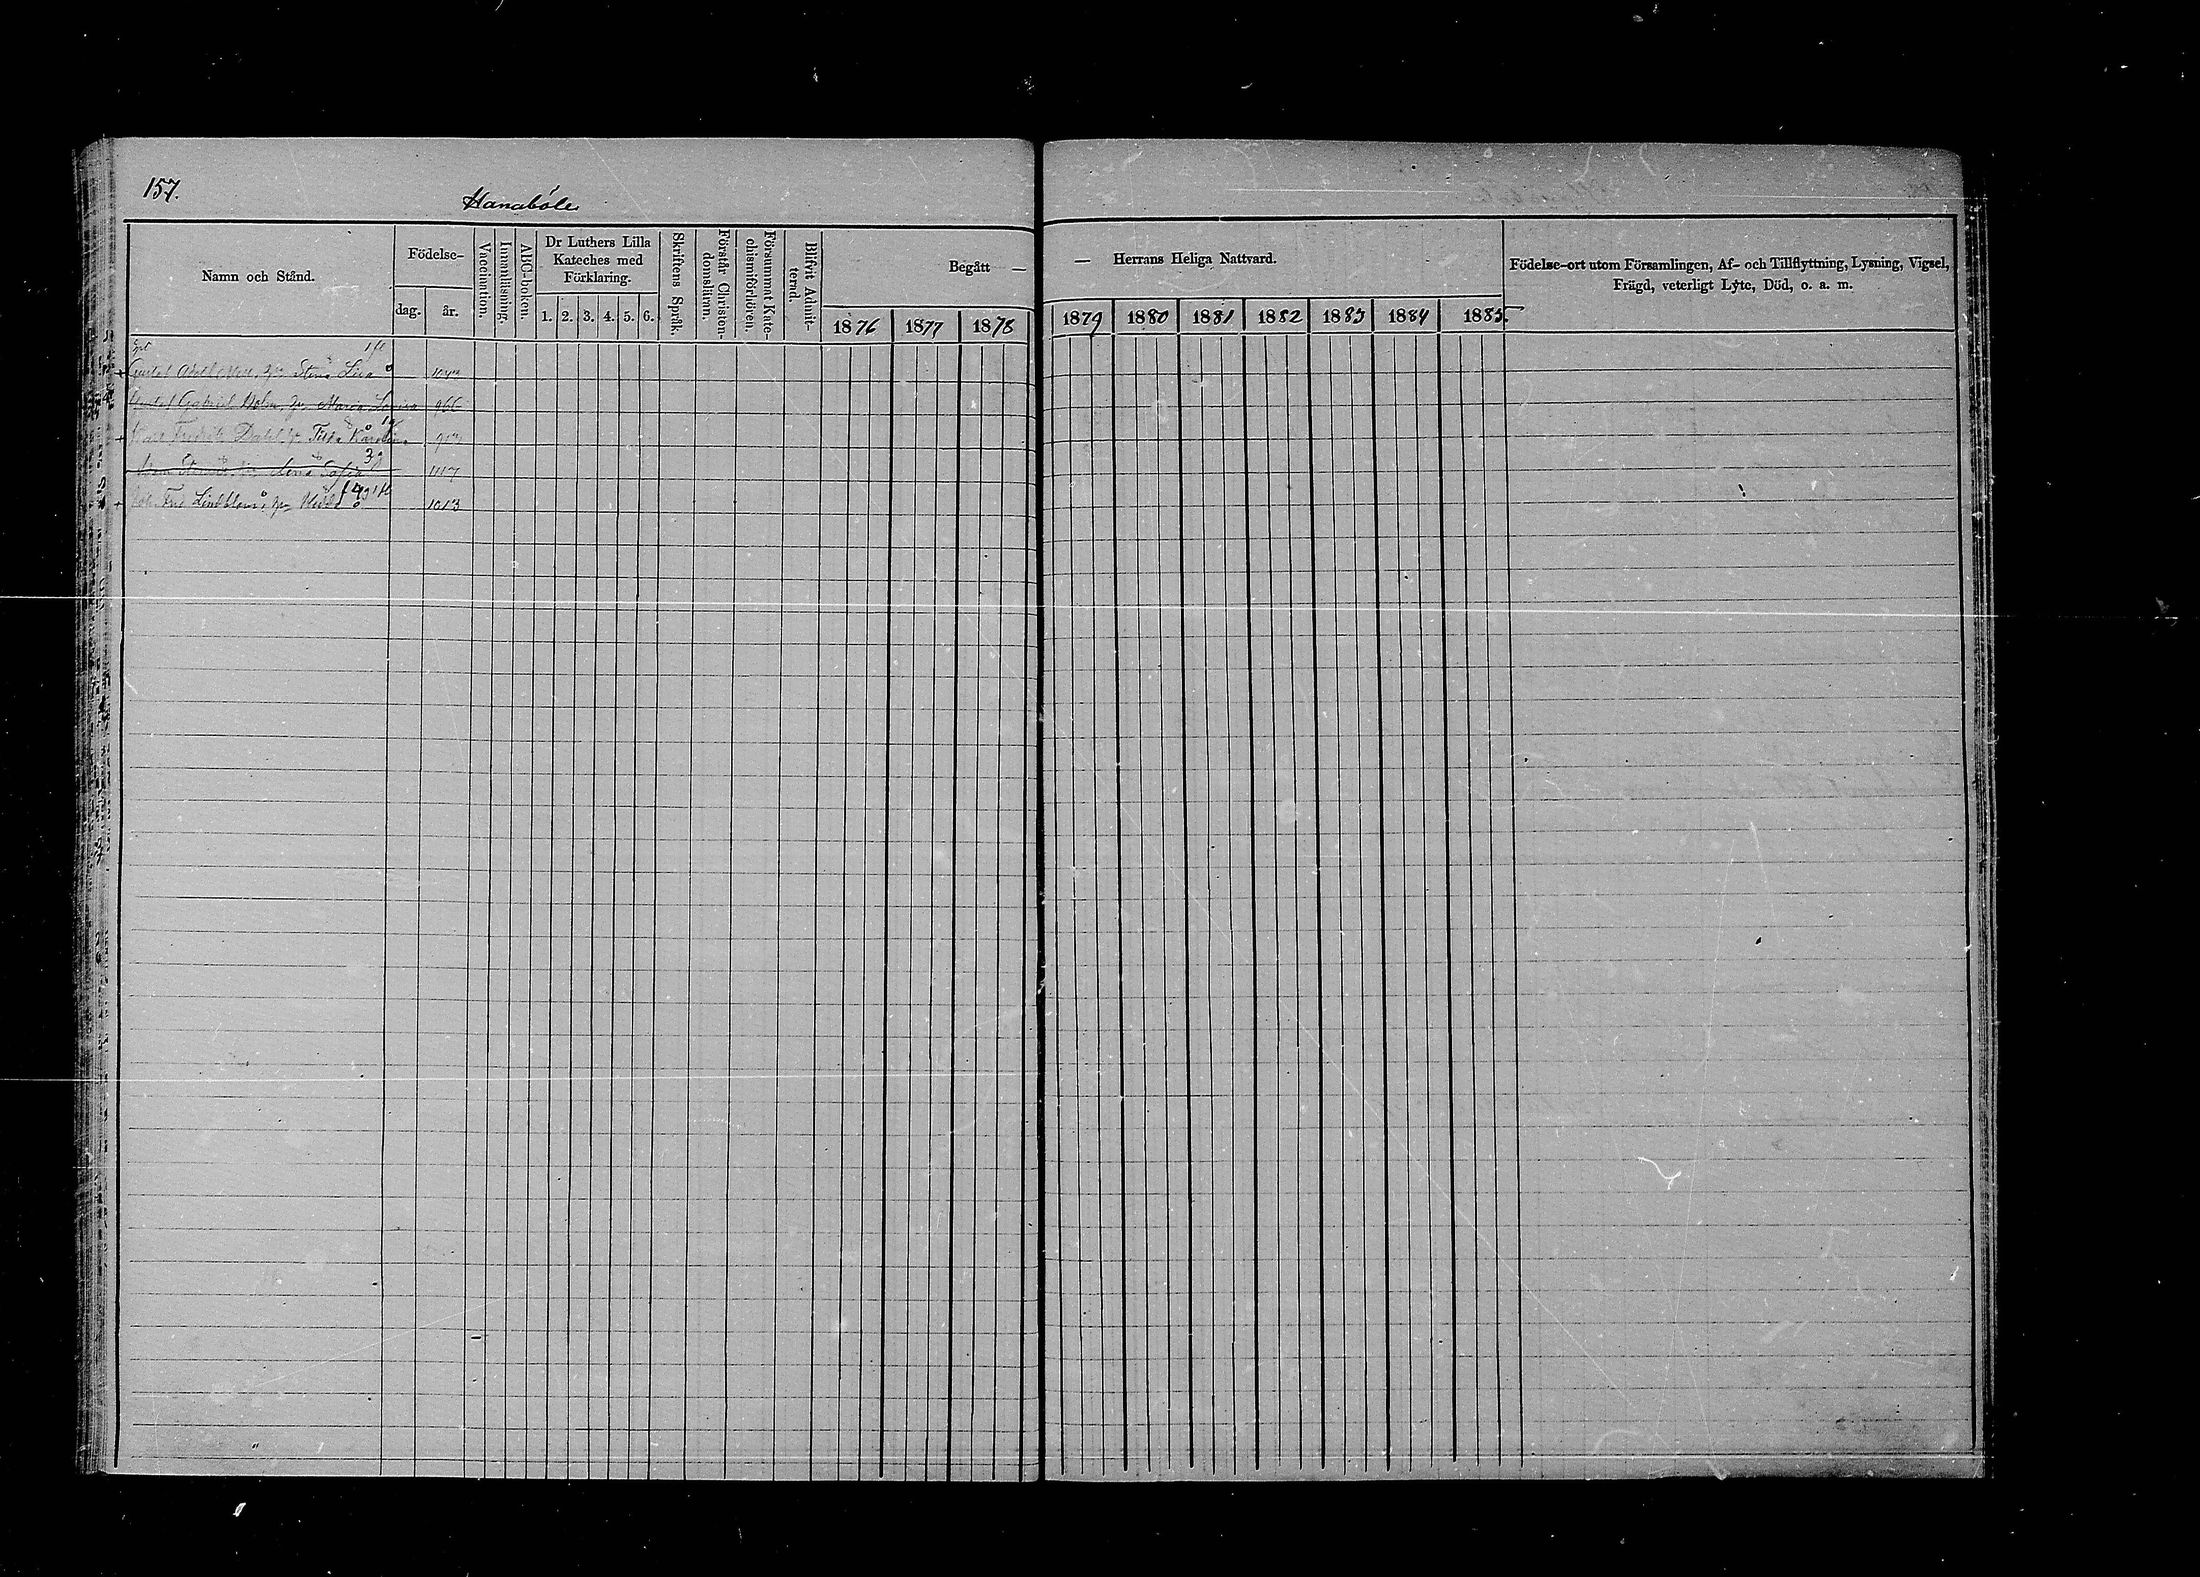 157.
Hanaböle
Namn och Stånd.
Födelse-
dag.
år.
Vaccination.
Innanläsning.
ABC-boken.
Dr Luthers Lilla
Kateches med
Förklaring.
1. 2. 3. 4. 5. 6.
Skriftens Språk.
Förstår Christen-
domslärnn.
Försummat Kate-
chismiförhören.
Blifvit Admit-
terad.
Begått —
1876 1877 1878
— Herrans Heliga Nattvard.
1879 1880 1881 1882 1883 1884 1885.
Födelse-ort utom Församlingen, Af- och Tillflyttning, Lysning, Vigsel,
Frägd, veterligt Lyte, Död, o. a. m.
Gustaf Adolf Stina Lisa
Gabriel Holm, Maria Lovisa 966
Karl Fredrik Dahl Karolina 913
Sofia 1117
Lindblom, 1013